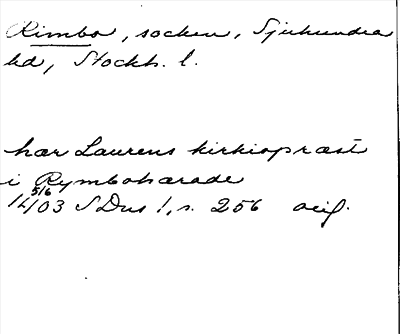 Rimbo, socken, Sjuhundra
hd, Stockh. l.
har Laurens kirkiopræst
i Rymbohærade
5/6
1403 SDns 1, s. 256 avig.